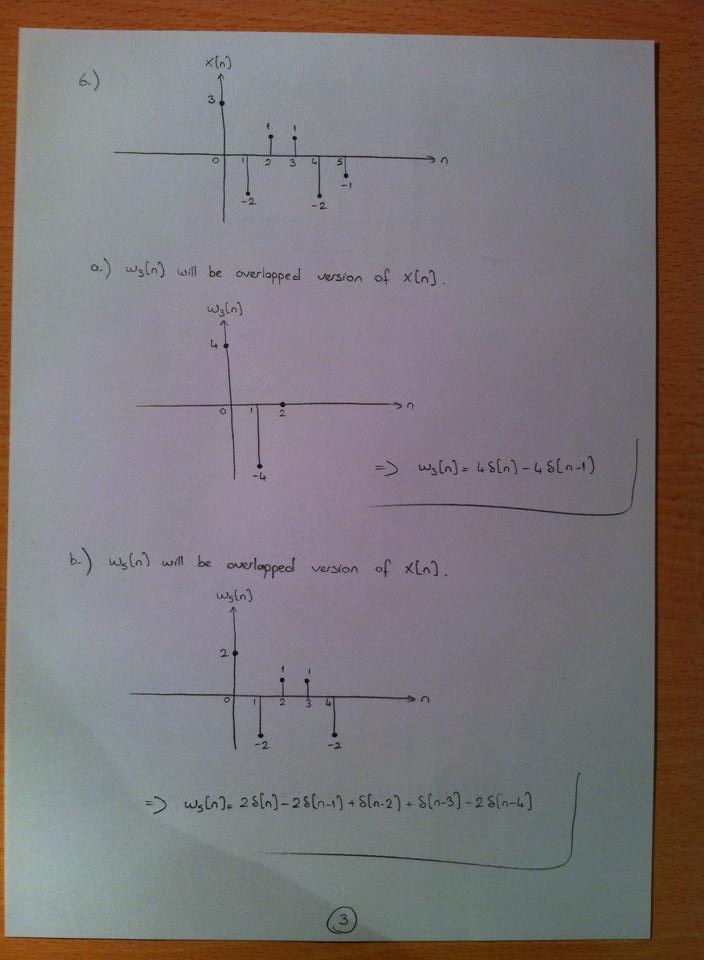 6.)
x[n]
3
1 1
0 1 2 3 4 5 n
-2 -2 -1
a.) w₃[n] will be overlapped version of x[n].
w₃[n]
4
0 1 2 n
-4
=> w₃[n] = 4δ[n] - 4δ[n-1]
b.) w₅[n] will be overlapped version of x[n].
w₅[n]
2
1 1
0 1 2 3 4 n
-2 -2
=> w₅[n] = 2δ[n] - 2δ[n-1] + δ[n-2] + δ[n-3] - 2δ[n-4]
3